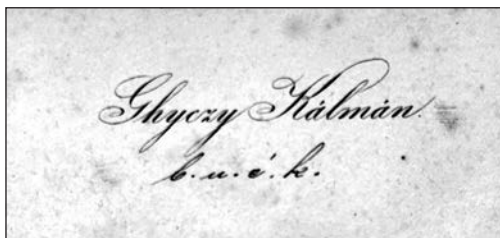 Ghyczy Kálmán.
b. u. é. k.